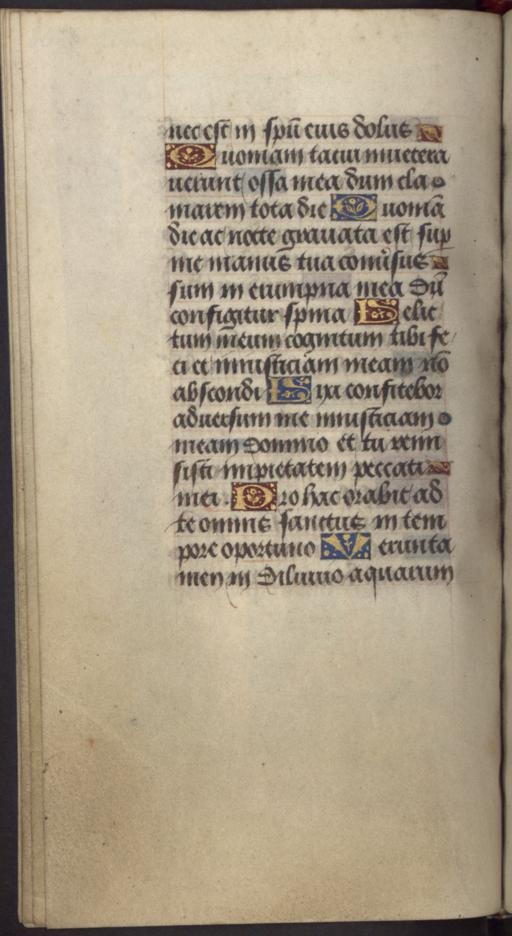 nec est in spū eius dolus
Quoniam tacui inuetera
uerunt ossa mea dum cla
marem tota die Quoniā
die ac nocte grauata est sup
me manus tua cōuersus
sum in erumpna mea Dū
configitur spina Delic
tum meum cognitum tibi fe
ci et iniusticiam meam nō
abscondi Dixi confitebor
aduersum me iniusticiam
meam domino et tu remi
sisti impietatem peccati
mei. Pro hac orabit ad
te omnis sanctus in tem
pore oportuno Verunta
men in diluuio aquarum